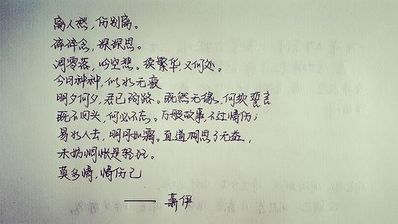 离人愁，伤别离。
碎碎念，深深思。
凋零落，吟空想。我繁华，又何处。
今日种种，似水无痕
明夕何夕，君已陌路。既然无缘，何须誓言
既不回头，何必不忘。万般故事，不过情伤；
易水人去，明月如霜。直道相思了无益，
未妨惆怅是轻狂。
莫多情，情伤己